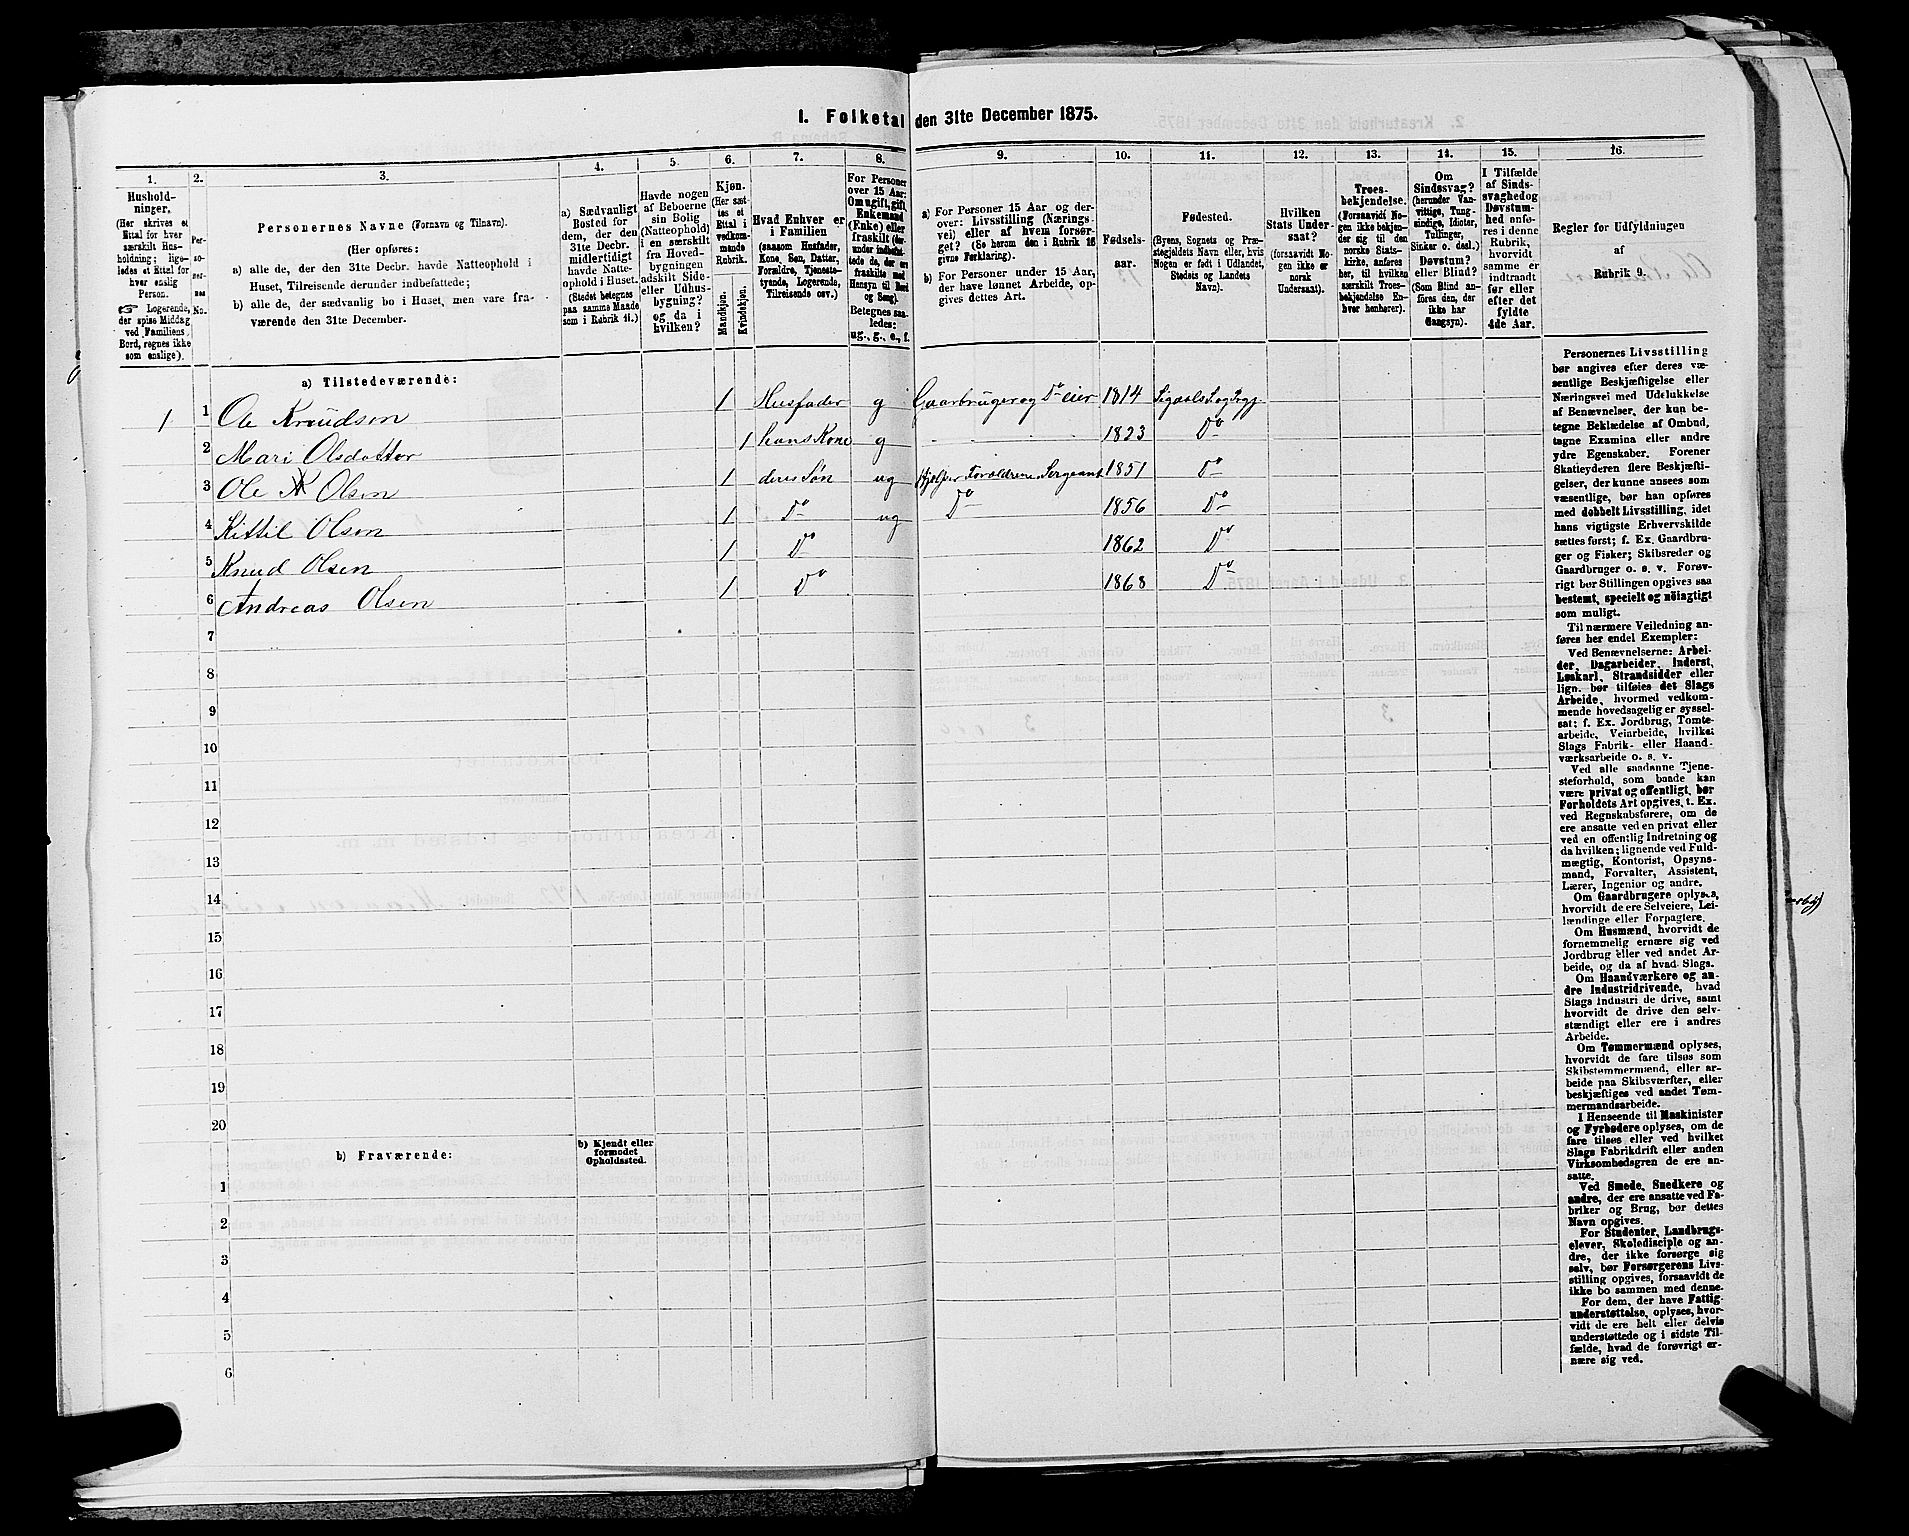 I. Folketal den 31te December 1875.
1.
Hushold-
ninger.
(Her skrives et
Ettal for hver
særskilt Hus-
holdning; lige-
ledes et Ettal for
hver enslig
Person.
Logerende,
der spise Middag
ved Familiens
Bord, regnes ikke
som enslige).
2.
Per-
so-
ner-
nes
No.
3.
Personernes Navne (Fornavn og Tilnavn).
(Her opføres:
a) alle de, der den 31te Decbr. havde Natteophold i
Huset, Tilreisende derunder indbefattede;
b) alle de, der sædvanlig bo i Huset, men vare fra-
værende den 31te December.
4.
a) Sædvanligt
Bosted for
dem, der den
31te Decbr.
midlertidigt
havde Natte-
ophold i Huset.
(Stedet betegnes
paa samme Maade
som i Rubrik 11.)
5.
Havde nogen
af Beboerne
sin Bolig
(Natteophold)
i en særskilt
fra Hoved-
bygningen
adskilt Side-
eller Udhus-
bygning?
og da i
hvilken?
6.
Kjøn.
(Her sæt-
tes et
Ettal i
vedkom-
mende
Rubrik.
Mandkjøn.
Kvindekjøn.
7.
Hvad Enhver er
i Familien
(saasom Husfader,
Kone, Søn, Datter,
Forældre, Tjeneste-
tyende, Logerende,
Tilreisende osv.)
8.
For Personer
over 15 Aar:
Om ugift, gift,
Enkemand
(Enke) eller
fraskilt (der-
under indbefat-
tede de, der ere
fraskilte med
Hensyn til Bord
og Seng).
Betegnes saa-
ledes:
ug., g., e., f.
9.
a) For Personer 15 Aar og der-
over: Livsstilling (Nærings-
vei) eller af hvem forsør-
get? (Se herom den i Rubrik 16
givne Forklaring).
b) For Personer under 15 Aar,
der have lønnet Arbeide, op-
gives dettes Art.
10.
Fødsels-
aar.
11.
Fødested.
(Byens, Sognets og Præ-
stegjeldets Navn eller, hvis
Nogen er født i Udlandet,
Stedets og Landets
Navn).
12.
Hvilken
Stats Under-
saat?
(forsaavidt No-
gen ikke er
norsk
Undersaat).
13.
Troes-
bekjendelse.
(Forsaavidt No-
gen ikke bekjen-
der sig til den
norske Stats-
kirke, anføres
her, til hvilken
særskilt Troes-
bekjendelse En-
hver henhører).
14.
Om
Sindssvag?
(herunder Van-
vittige, Tung-
sindige, Idioter,
Tullinger,
Sinker o. desl.)
Døvstum?
eller Blind?
(Som Blind an-
føres den, der
ikke har
Gangsyn).
15.
I Tilfælde
af Sinds-
svaghed og
Døvstum-
hed anfø-
res i denne
Rubrik,
hvorvidt
samme er
indtraadt
før eller
efter det
fyldte
4de Aar.
16.
Regler for Udfyldningen
af
Rubrik 9.
a) Tilstedeværende:
1 1 Ole Knudsen 1 Husfader g Gaardbruger og Do eier 1814 Sigdals S og Prgj
2 Mari Olsdatter 1 hans Kone g 1823 Do
3 Ole K Olsen 1 deres Søn ug Hjelper Forældrene Sergeant 1851 Do
4 Kittil Olsen 1 Do ug Do 1856 Do
5 Knud Olsen 1 Do 1862 Do
6 Andreas Olsen 1 Do 1868 Do
7
8
9
10
11
12
13
14
15
16
17
18
19
20
b) Fraværende:
b) Kjendt eller
formodet
Opholdssted.
1
2
3
4
5
6
Personernes Livsstilling
bør angives efter deres væ-
sentlige Beskjæftigelse eller
Næringsvei med Udelukkelse
af Benævnelser, der kun be-
tegne Beklædelse af Ombud,
tagne Examina eller andre
ydre Egenskaber. Forener
Skatteyderen flere Beskjæfti-
gelser, der kunne ansees som
væsentlige, bør han opføres
med dobbelt Livsstilling, idet
hans vigtigste Erhvervskilde
sættes først; f. Ex. Gaardbru-
ger og Fisker; Skibsreder og
Gaardbruger o. s. v. Forøv-
rigt bør Stillingen opgives saa
bestemt, specielt og nöiagtigt
som muligt.
Til nærmere Veiledning an-
føres her endel Exempler:
Ved Benævnelserne: Arbei-
der, Dagarbeider, Inderst,
Løskarl, Strandsidder eller
lign. bør tilføies det Slags
Arbeide, hvormed vedkom-
mende hovedsagelig er syssel-
sat; f. Ex. Jordbrug, Tomte-
arbeide, Veiarbeide, hvilket
Slags Fabrik- eller Haand-
værksarbeide o. s. v.
Ved alle saadanne Tjene-
steforhold, som baade kan
være privat og offentligt, bør
Forholdets Art opgives, t. Ex.
ved Regnskabsførere, om de
ere ansatte ved en privat eller
ved en offentlig Indretning og
da hvilken; lignende ved Fuld-
mægtig, Kontorist, Opsyns-
mand, Forvalter, Assistent,
Lærer, Ingeniør og andre.
Om Gaardbrugere oplyses,
hvorvidt de ere Selveiere, Lei-
lændinge eller Forpagtere.
Om Husmænd, hvorvidt de
fornemmelig ernære sig ved
Jordbrug eller ved andet Ar-
beide, og da af hvad Slags.
Om Haandværkere og an-
dre Industridrivende, hvad
Slags Industri de drive, samt
hvorvidt de drive den selv-
stændigt eller ere i andres
Arbeide.
Om Tømmermænd oplyses,
hvorvidt de fare tilsøs som
Skibstømmermænd, eller ar-
beide paa Skibsværfter, eller
beskjæftiges ved andet Tøm-
mermandsarbeide.
I Henseende til Maskinister
og Fyrbødere oplyses, om de
fare tilsøs eller ved hvilket
Slags Fabrikdrift eller anden
Virksomhedsgren de ere an-
satte.
Ved Smede, Snedkere og
andre, der ere ansatte ved Fa-
briker og Brug, bør dettes
Navn opgives.
For Studenter, Landbrugs-
elever, Skoledisciple og an-
dre, der ikke forsørge sig
selv, bør Forsørgerens Livs-
stilling opgives, forsaavidt de
ikke bo sammen med denne.
For dem, der have Fattig-
understøttelse, oplyses, hvor-
vidt de ere helt eller delvis
understøttede og i sidste Til-
fælde, hvad de forøvrigt er-
nære sig ved.